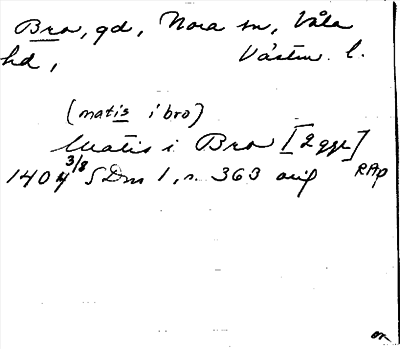 Bro, gd, Nora sn, Våla
hd, Västm. l.
(matis i bro)
Matis i Bro [2 ggr]
1404 3/8 SDns 1, s. 363 orig RAp